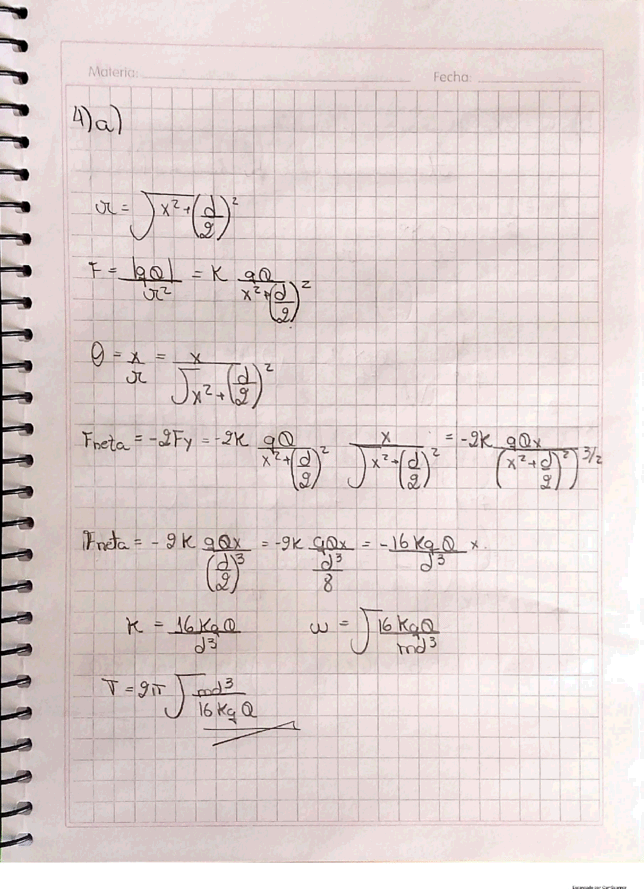 Materia: Fecha:
4)a)
r = √x²+(d/2)²
F = |qQ|/r² = K qQ/x²+(d/2)²
θ = x/r = x/√x²+(d/2)²
Fneta = -2Fy = -2K qQ/x²+(d/2)² x/√x²+(d/2)² = -2K qQx/(x²+(d/2)²)^3/2
Fneta = -2K qQx/(d/2)³ = -2K qQx/d³/8 = -16KqQ/d³ x
K = 16KqQ/d³ ω = √16KqQ/md³
T = 2π √md³/16KqQ